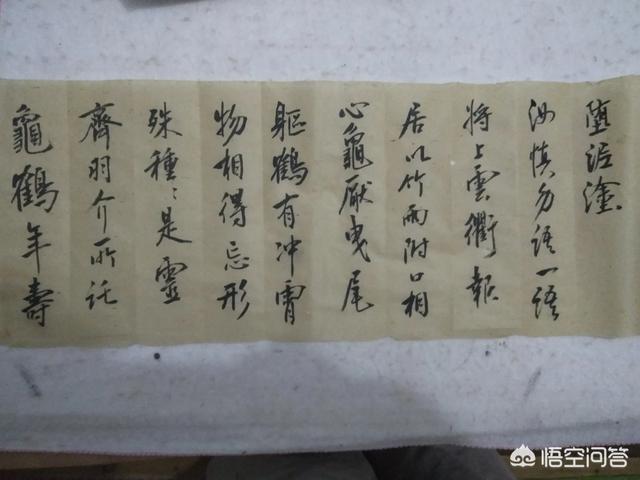 龜鶴年壽
齊羽介所託
殊種〻是靈
物相得忘形
軀鶴有冲霄
心龜厭曳尾
居以竹兩附口相
將上雲衢報
汝慎勿語一語
墮泥塗
悟空问答